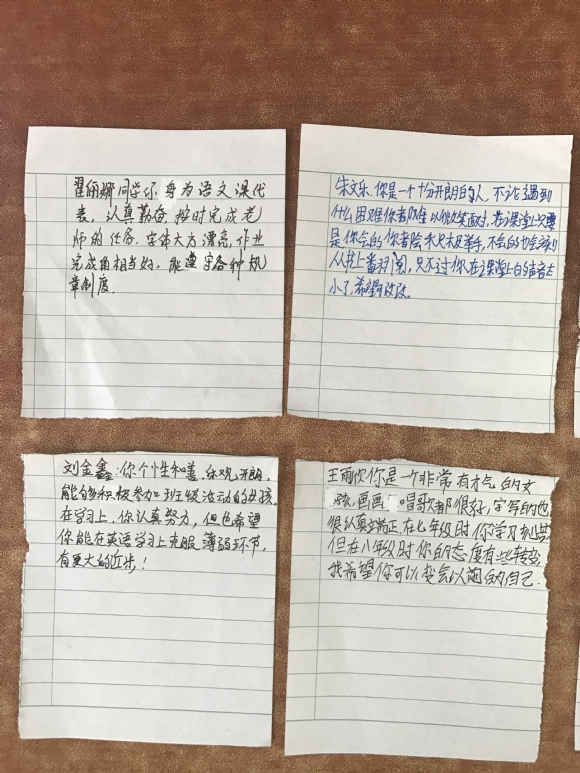 翟俪娜同学你身为语文课代
表，认真勤奋，按时完成老
师的任务，字体大方漂亮，作业
完成的相当好，能遵守各种规
章制度.
朱文乐，你是一个十分开朗的人，不论遇到
什么困难你都以微笑面对，在课堂上只要
是你会的你都会积极举手，不会的也会
从书上翻阅，只不过你在课堂上的声音太
小了，希望改改.
刘金鑫：你个性和善，乐观开朗，
能够积极参加班级活动的女孩，
在学习上，你认真努力，但也希望
你能在英语学习上克服薄弱环节，
有更大的近步！
王雨欣你是一个非常有才气的女
孩，画画 唱歌都很好，字写的也
很认真端正在七年级时你学习刻苦
但在八年级时你的态度有些转变，
我希望你可以变会以前的自己.